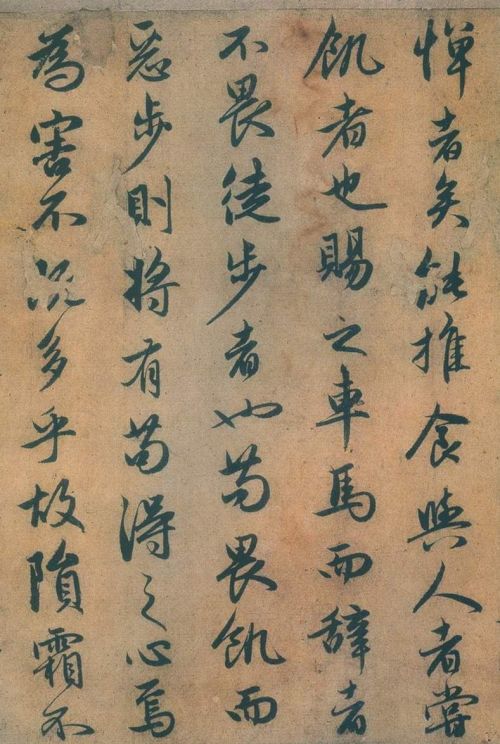 惮者矣能推食與人者嘗
飢者也賜之車馬而辞者
不畏徒步者也苟畏飢而
惡步則将有苟得之心焉
為害不既多乎故隕霜不